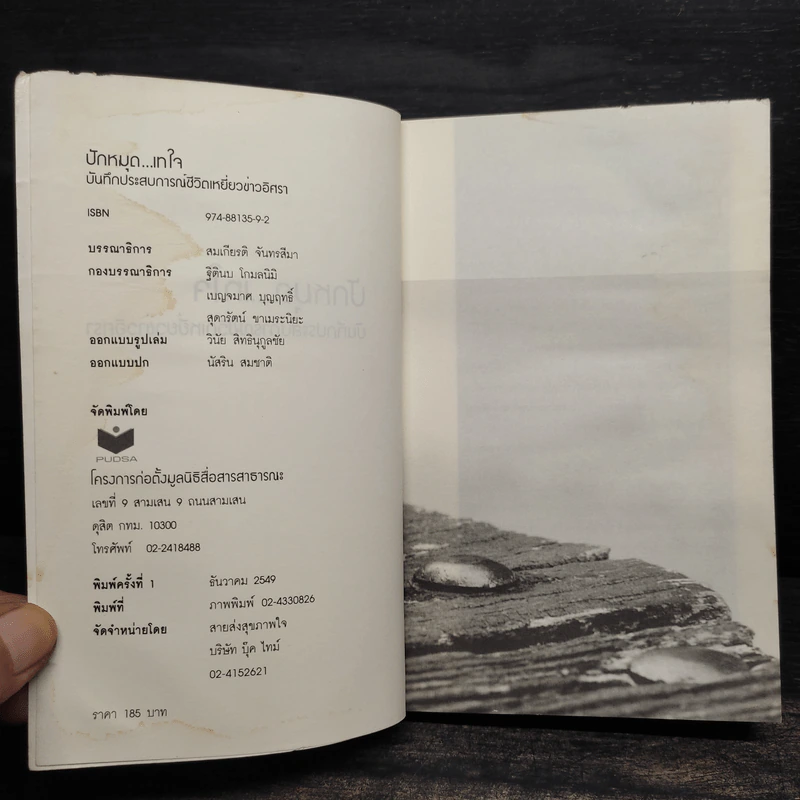 ปักหมุด...เทใจ
บันทึกประสบการณ์ชีวิตเหยี่ยวข่าวอิศรา
ISBN 974-88135-9-2
บรรณาธิการ สมเกียรติ จันทรสีมา
กองบรรณาธิการ ฐิตินบ โกมลนิมิ
เบญจมาศ บุญฤทธิ์
สุดารัตน์ ขาเมระนิยะ
ออกแบบรูปเล่ม วินัย สิทธินุกูลชัย
ออกแบบปก นัสริน สมชาติ
จัดพิมพ์โดย
PUDSA
โครงการก่อตั้งมูลนิธิสื่อสารสาธารณะ
เลขที่ 9 สามเสน 9 ถนนสามเสน
ดุสิต กทม. 10300
โทรศัพท์ 02-2418488
พิมพ์ครั้งที่ 1 ธันวาคม 2549
พิมพ์ที่ ภาพพิมพ์ 02-4330826
จัดจำหน่ายโดย สายส่งสุขภาพใจ
บริษัท บุ๊ค ไทม์
02-4152621
ราคา 185 บาท